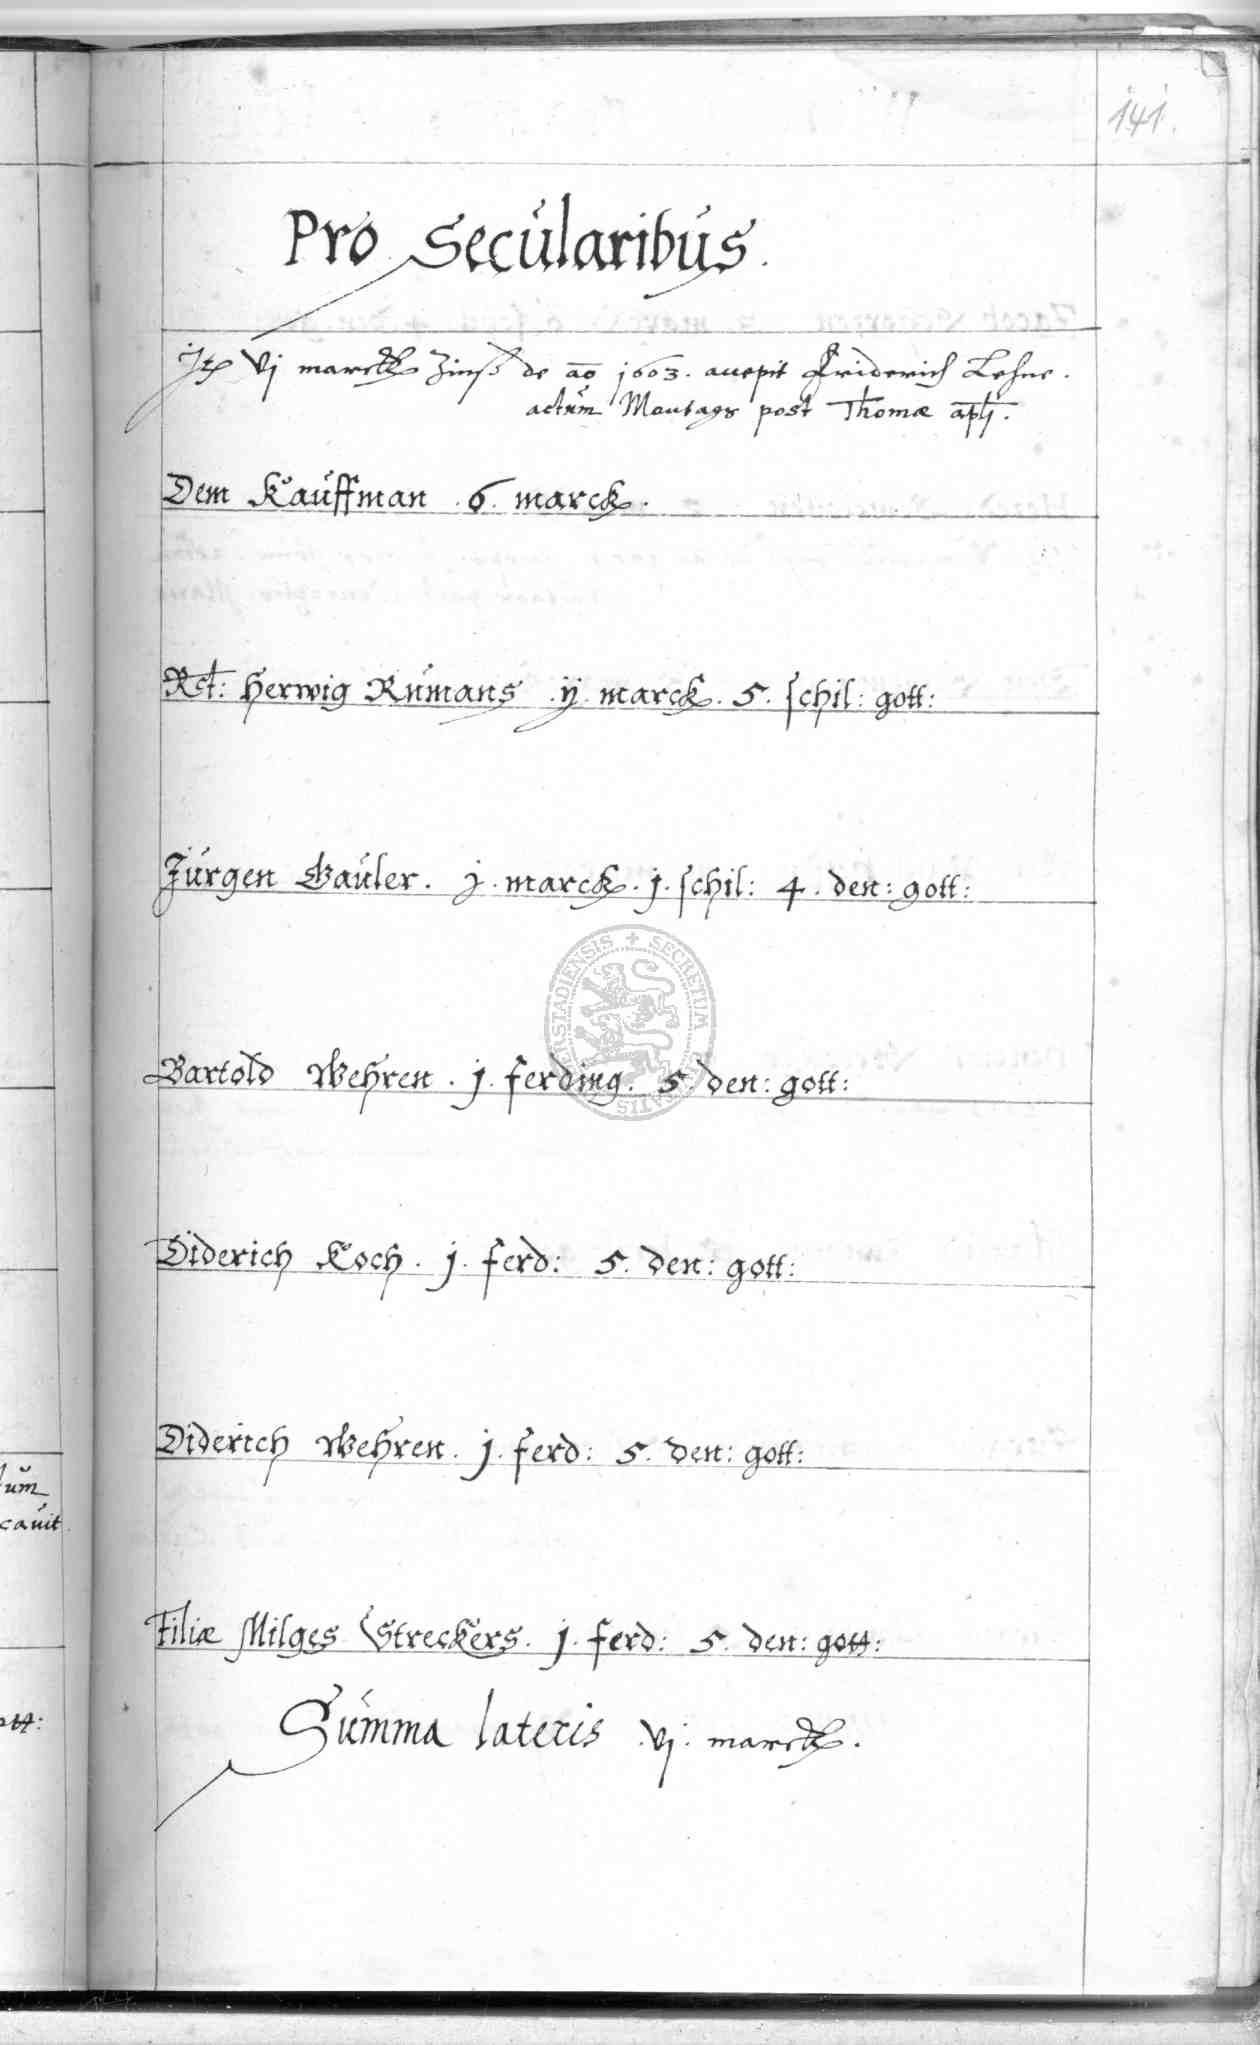 141.
Pro Secularibus.
Itē vj marck Zinß de ao 1603. accepit Friderich Lehne.
actum Montags post Thomæ apli.
Dem Kauffman .6. marck.
Rct: Herwig Rumans .ij. marck. 5. schil: gott:
Jürgen Gauler. j. marck. j. schil: 4. den: gott:
Bartold Wehren. j. ferding. 5. den: gott:
Diderich Koch. j. ferd: 5. den: gott:
Diderich Wehren. j. ferd: 5. den: gott:
tum
cauit
Filiæ Milges Streckers. j. ferd: 5. den: gott:
Summa lateris .vj. marck.
ott:
SECRETUM